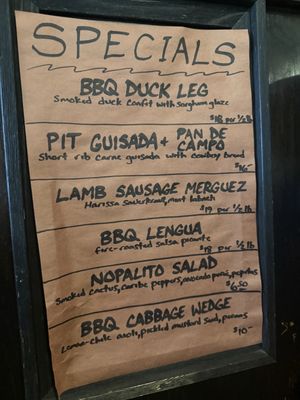 SPECIALS
BBQ DUCK LEG
Smoked duck confit with sorghum glaze
$18 per ½ lb
PIT GUISADA + PAN DE CAMPO
Short rib carne guisada with cowboy bread
$16-
LAMB SAUSAGE MERGUEZ
Harissa Sauerkraut, mint labneh
$19 per ½ lb
BBQ LENGUA
fire-roasted salsa picante
$18 per ½ lb
NOPALITO SALAD
Smoked cactus, caribe peppers, avocado pureé, pepitas
$6.50
BBQ CABBAGE WEDGE
aioli, pickled mustard seed,
$10-